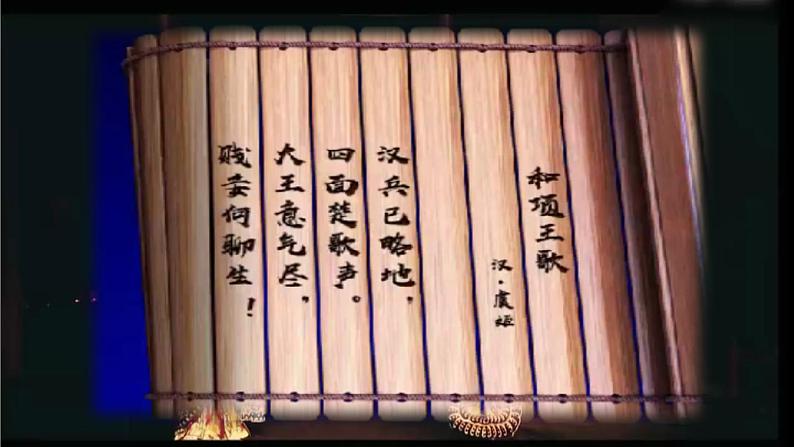 和项王歌
汉·虞姬
汉兵已略地，
四面楚歌声。
大王意气尽，
贱妾何聊生！